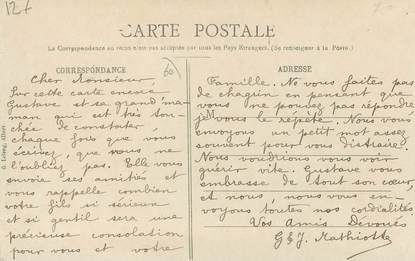 12f
CARTE POSTALE
La Correspondance au recto n'est pas acceptée par tous les Pays Etrangers. (Se renseigner à la Poste.)
CORRESPONDANCE
60
Cher Monsieur,
Sur cette carte
Gustave et sa grand'ma-
man qui est très tou-
chée de constater
chaque fois que vous
écrivez, que vous ne
l'oubliez pas. Elle vous
envoie ses amitiés et
vous rappelle combien
votre fils si sérieux
et si gentil sera une
précieuse consolation
pour vous et votre
ADRESSE
Famille. Ne vous faites pas
de chagrin en pensant que
vous ne pouvez pas répondre
je vous le repète. Nous vous
envoyons un petit mot assez
souvent pour vous distraire.
Nous voudrions vous voir
guérir vite. Gustave vous
embrasse de tout son cœur,
et nous, nous vous en-
voyons toutes nos cordialités
Vos Amis Dévoués
G & J. Mathiotte
G. Lelong, Albert